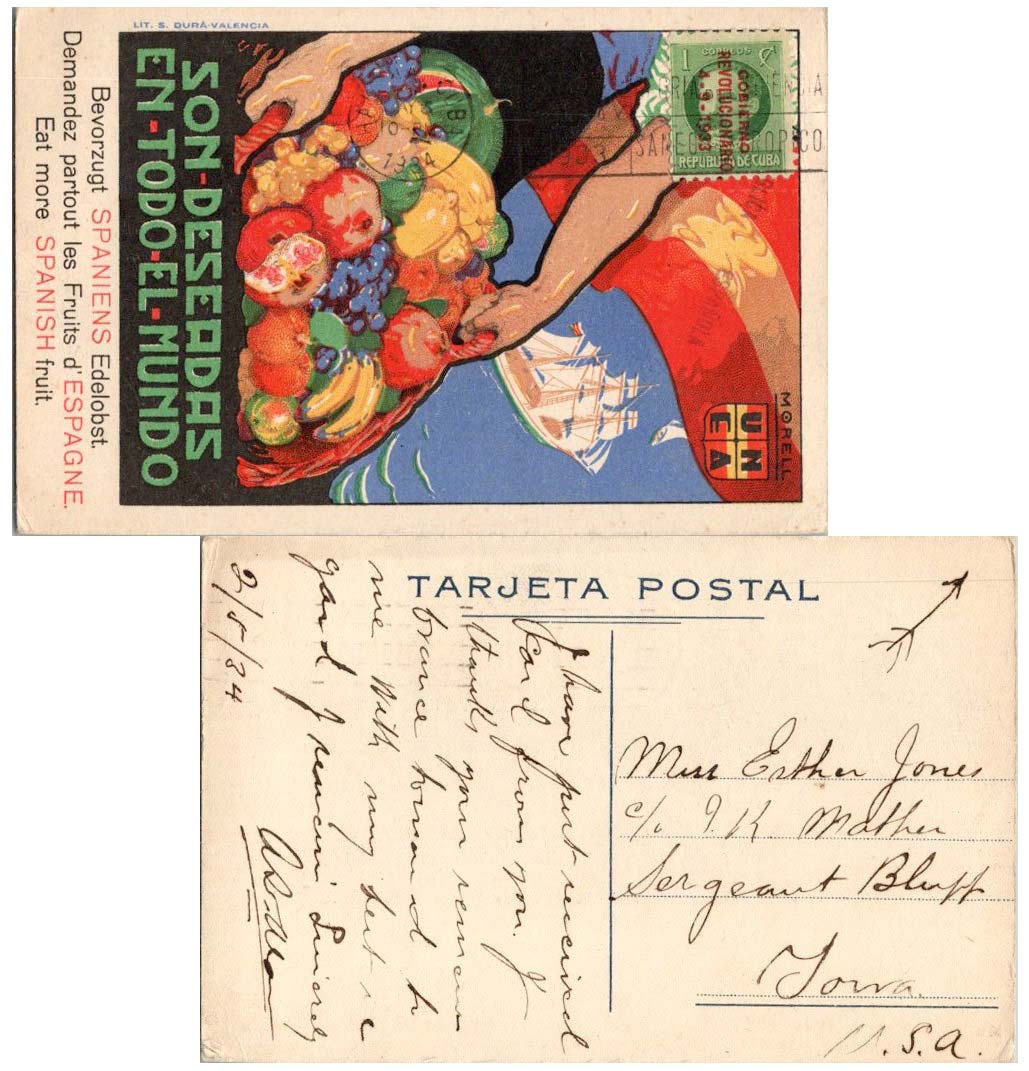 LIT. S. DURÁ-VALENCIA
SON-DESEADAS
EN-TODO-EL-MUNDO
Bevorzugt SPANIENS Edelobst.
Demandez partout les Fruits d'ESPAGNE.
Eat more SPANISH fruit.
MORELL
UNEA
1 CORREOS
GOBIERNO
REVOLUCIONARIO
4-9-1933
REPUBLICA DE CUBA
1934
TARJETA POSTAL
I have just received
card from you. I
thank your remem
brance tousand to
me With my best re
gard I remain Sincerely
2/5/34
Miss Esther Jones
c/o I. K. Mather
Sergeant Bluff
Iowa.
U.S.A.